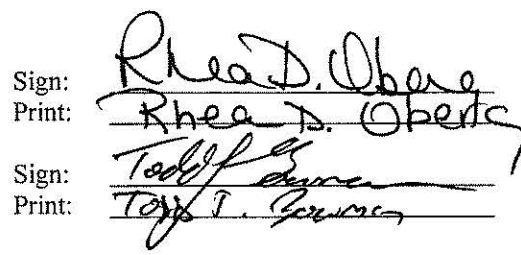 Sign: Rhea D. Oberg
Print: Rhea D. Oberg
Sign: Todd J. Bowman
Print: Todd J. Bowman